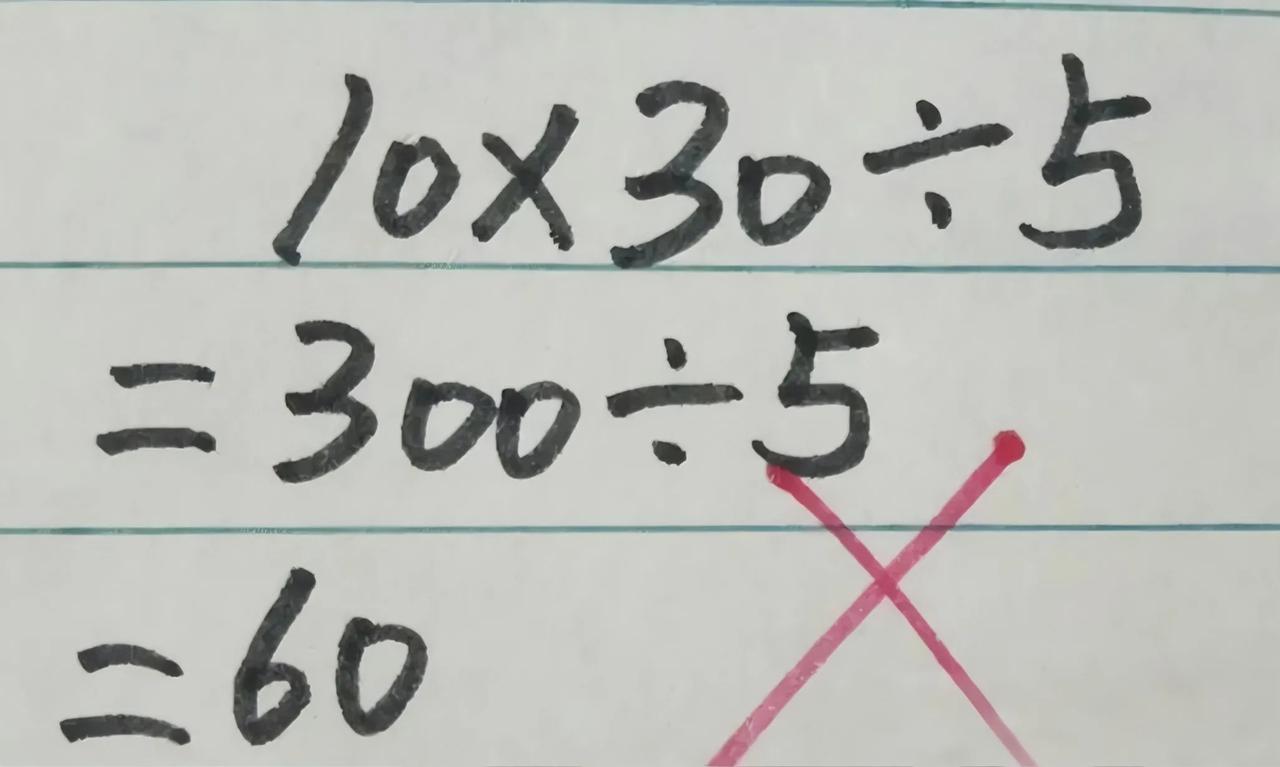 10×30÷5
=300÷5
=60